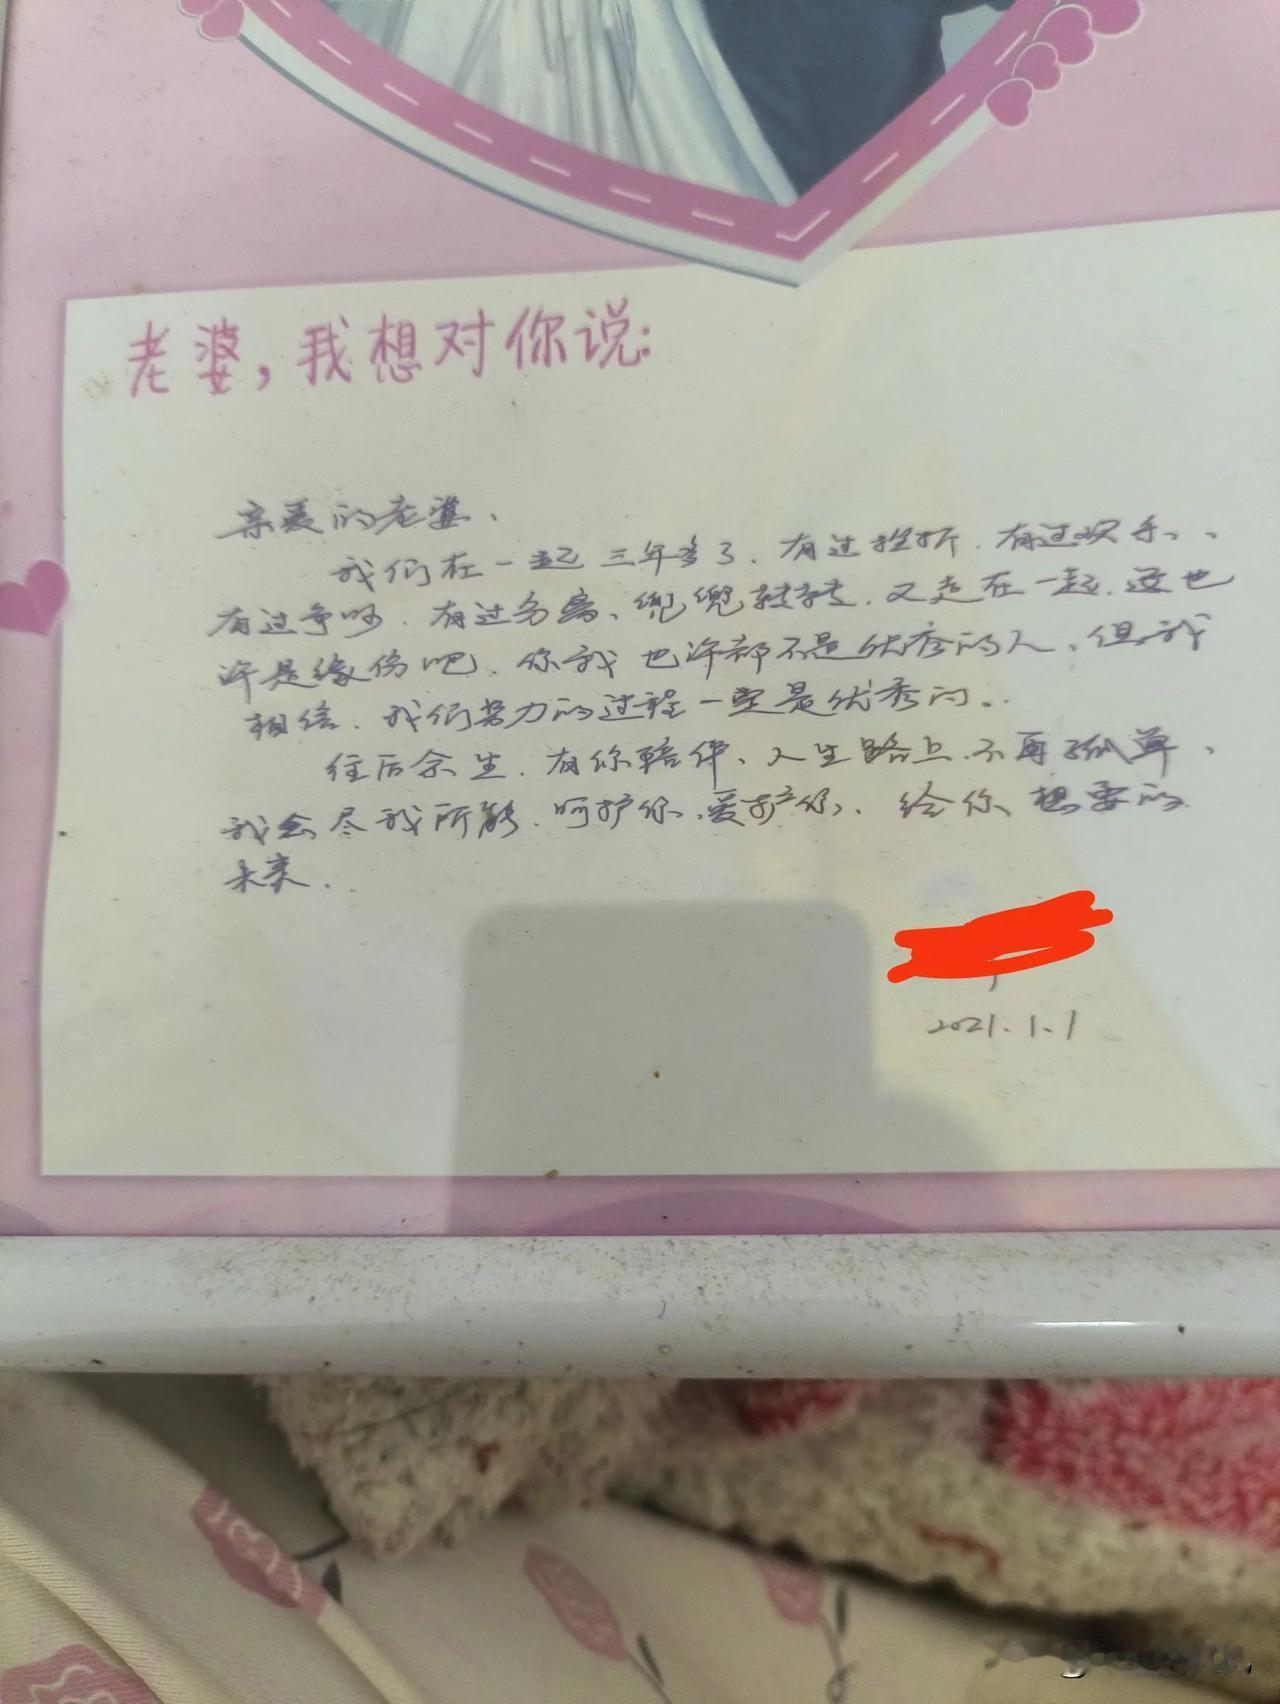 老婆，我想对你说：
亲爱的老婆、
我们在一起三年多了．有过挫折．有过欢乐、、
有过争吵．有过分离、兜兜转转．又走在一起．这也
许是缘份吧．你我也许都不是优秀的人、但我
相信．我们努力的过程一定是优秀的。
往后余生．有你陪伴、人生路上．不再孤单、
我会尽我所能．呵护你、爱护你、给你想要的
未来．
2021.1.1